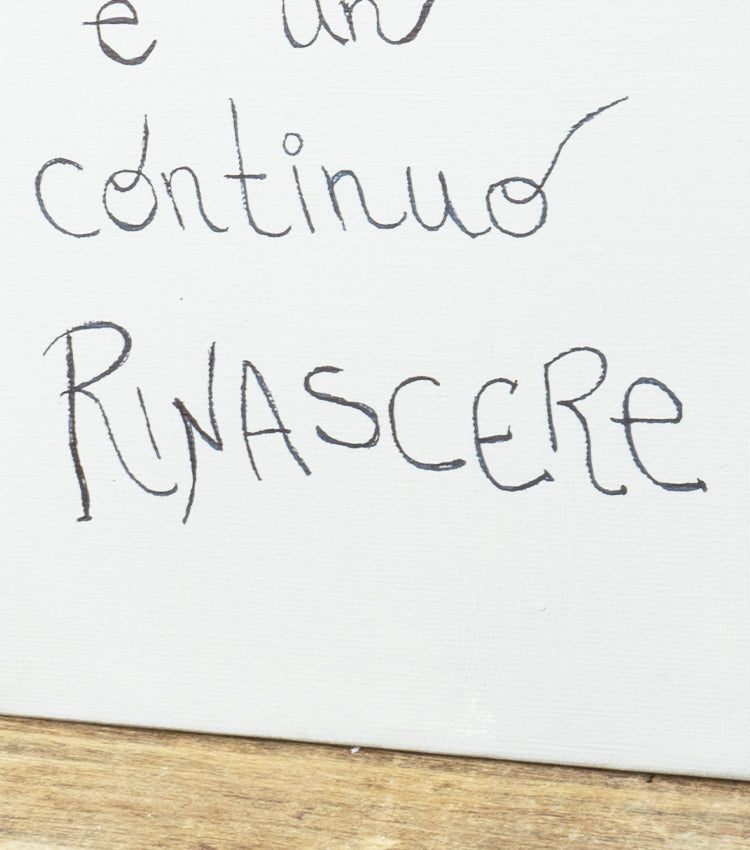 è un
continuo
RINASCERe